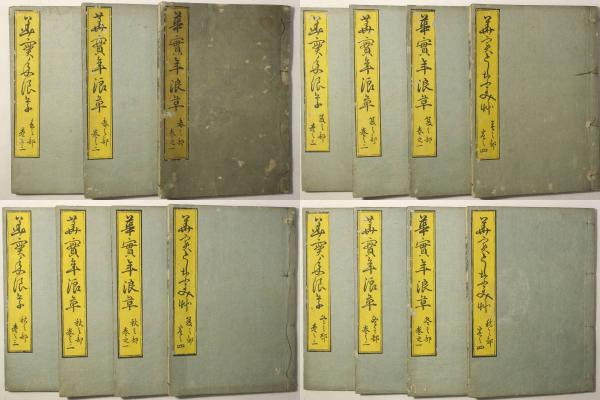 華實年浪草
春之部
卷之一
華實年浪草
春之部
卷之二
華實年浪草
春之部
卷之三
春之部
卷之四
華實年浪草
夏之部
卷之一
華實年浪草
夏之部
卷之二
華實年浪草
夏之部
卷之三
夏之部
卷之四
華實年浪草
秋之部
卷之一
華實年浪草
秋之部
卷之二
華實年浪草
秋之部
卷之三
秋之部
卷之四
華實年浪草
冬之部
卷之一
華實年浪草
冬之部
卷之二
華實年浪草
冬之部
卷之三